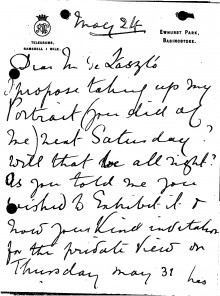 May 24
TELEGRAMS,
RAMSDELL 1 MILE.
EWHURST PARK,
BASINGSTOKE.
Dear M de László
I propose taking up my
Portrait (you did of
me) next Saturday?
Will that be all right?
As you told me you
wished to Exhibit it &
now your kind invitation
for the private View on
Thursday May 31 has